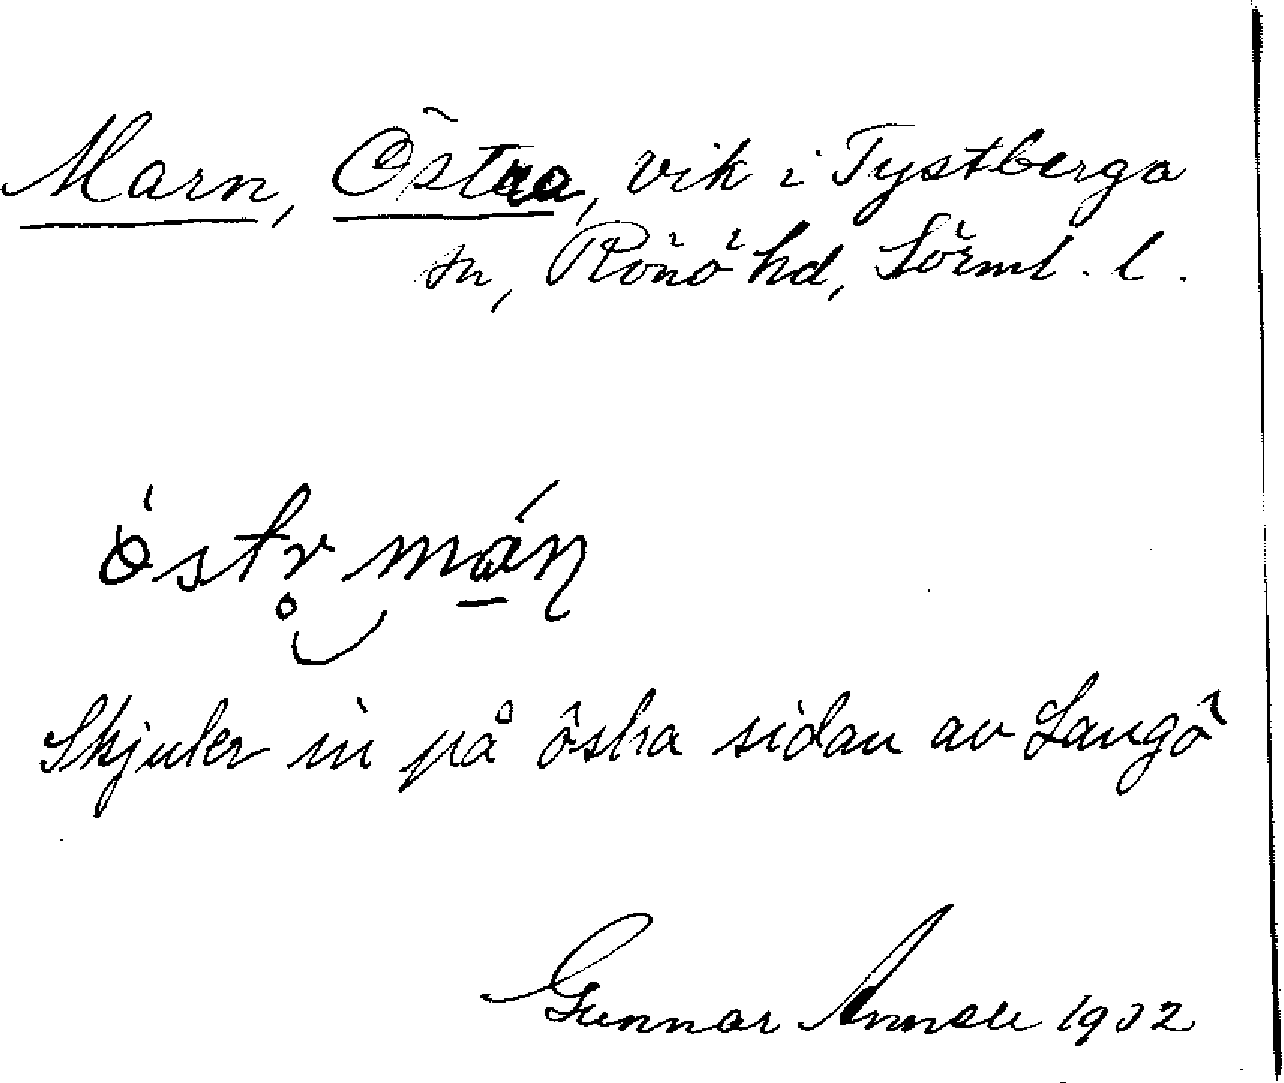 Marn, Östra, vik i Tystberga
sn, Rönö hd, Sörml. l.
östr mán
Skjuler in på östra sidan av Langö
Gunnar 1932